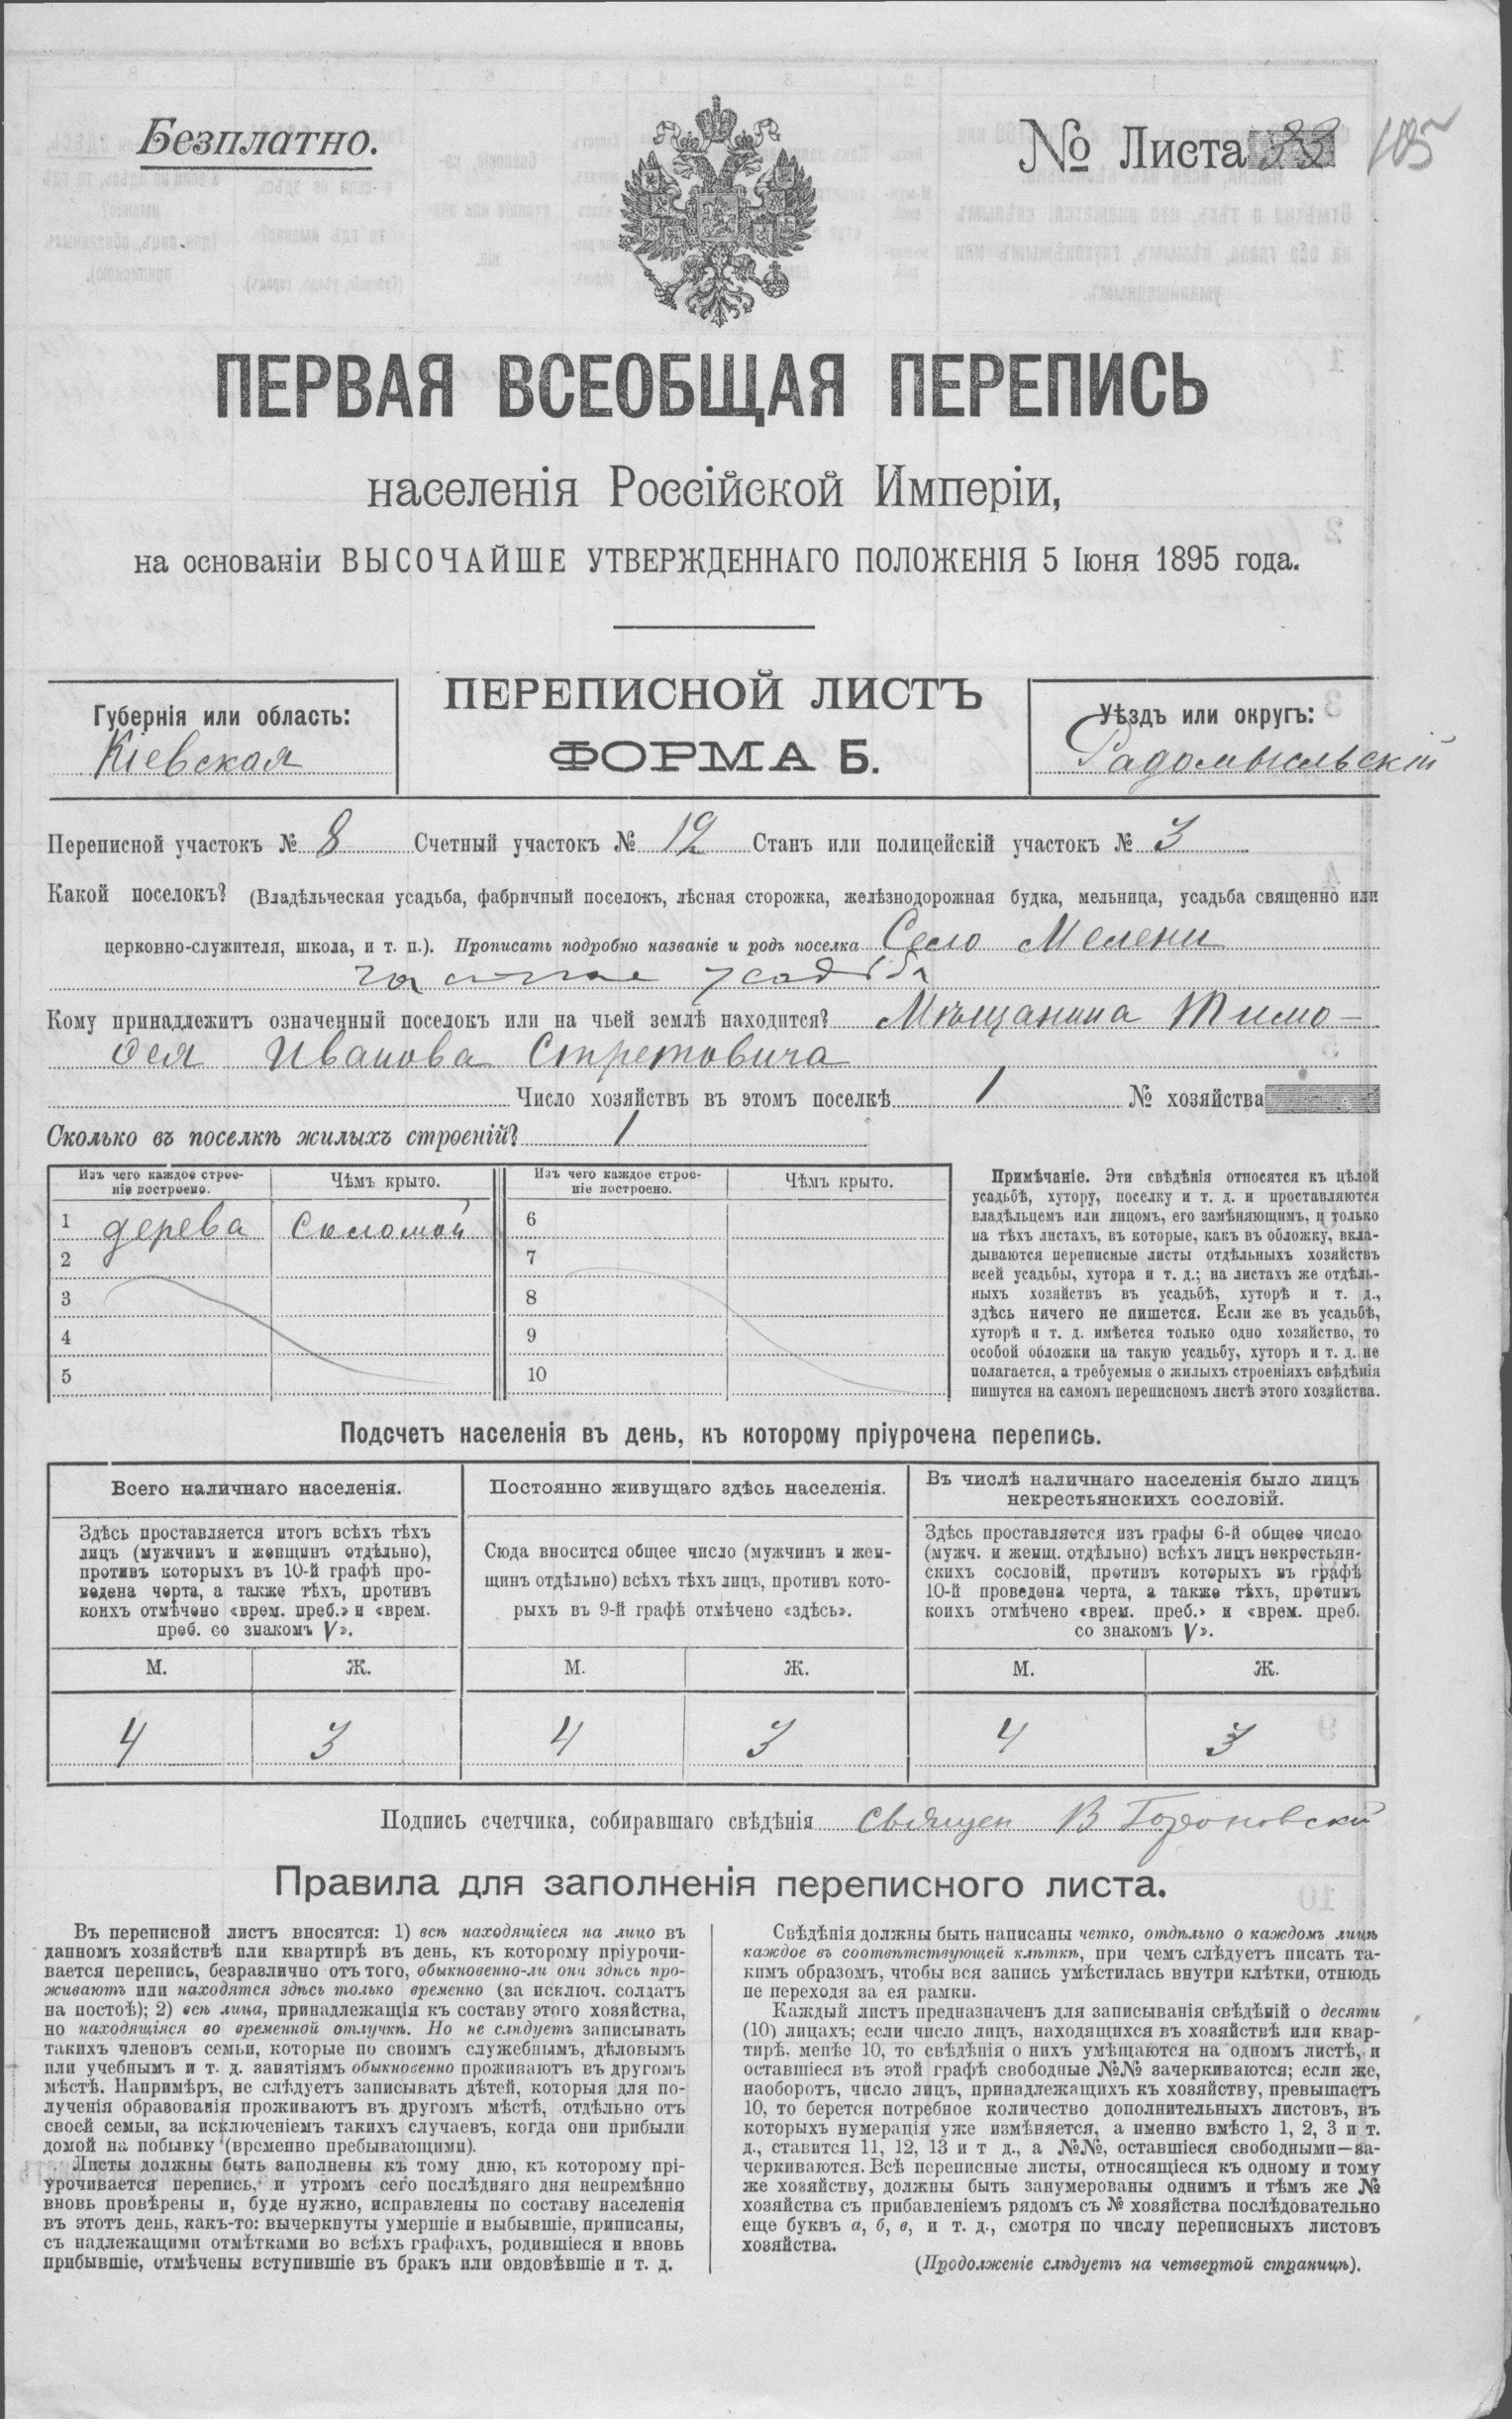 Безплатно.
№ Листа 33 105
ПЕРВАЯ ВСЕОБЩАЯ ПЕРЕПИСЬ
населенія Россійской Имперіи,
на основаніи ВЫСОЧАЙШЕ УТВЕРЖДЕННАГО ПОЛОЖЕНІЯ 5 Іюня 1895 года.
Губернія или область:
Кіевская
ПЕРЕПИСНОЙ ЛИСТЪ
ФОРМА Б.
Уѣздъ или округъ:
Радомысльскій
Переписной участокъ № 8 Счетный участокъ № 12 Станъ или полицейскій участокъ № 3
Какой поселокъ? (Владѣльческая усадьба, фабричный поселокъ, лѣсная сторожка, желѣзнодорожная будка, мельница, усадьба священно или
церковно-служителя, школа, и т. п.). Прописать подробно названіе и родъ поселка Село Мелени
усадьба
Кому принадлежитъ означенный поселокъ или на чьей землѣ находится? Мѣщанина Тимо-
ѳея Иванова Стретовича
Число хозяйствъ въ этомъ поселкѣ 1 № хозяйства
Сколько въ поселкѣ жилыхъ строеній? 1
Изъ чего каждое строе-
ніе построено.
Чѣмъ крыто.
Изъ чего каждое строе-
ніе построено.
Чѣмъ крыто.
1 дерева соломой 6
2 7
3 8
4 9
5 10
Примѣчаніе. Эти свѣдѣнія относятся къ цѣлой
усадьбѣ, хутору, поселку и т. д. и проставляются
владѣльцемъ или лицомъ, его замѣняющимъ, и только
на тѣхъ листахъ, въ которые, какъ въ обложку, вкла-
дываются переписные листы отдѣльныхъ хозяйствъ
всей усадьбы, хутора и т. д.; на листахъ же отдѣль-
ныхъ хозяйствъ въ усадьбѣ, хуторѣ и т. д.,
здѣсь ничего не пишется. Если же въ усадьбѣ,
хуторѣ и т. д. имѣется только одно хозяйство, то
особой обложки на такую усадьбу, хуторъ и т. д. не
полагается, а требуемыя о жилыхъ строеніяхъ свѣдѣнія
пишутся на самомъ переписномъ листѣ этого хозяйства.
Подсчетъ населенія въ день, къ которому пріурочена перепись.
Всего наличнаго населенія.
Здѣсь проставляется итогъ всѣхъ тѣхъ
лицъ (мужчинъ и женщинъ отдѣльно),
противъ которыхъ въ 10-й графѣ про-
ведена черта, а также тѣхъ, противъ
коихъ отмѣчено «врем. преб.» и «врем.
преб. со знакомъ V».
Постоянно живущаго здѣсь населенія.
Сюда вносится общее число (мужчинъ и жен-
щинъ отдѣльно) всѣхъ тѣхъ лицъ, противъ кото-
рыхъ въ 9-й графѣ отмѣчено «здѣсь».
Въ числѣ наличнаго населенія было лицъ
некрестьянскихъ сословій.
Здѣсь проставляется изъ графы 6-й общее число
(мужч. и женщ. отдѣльно) всѣхъ лицъ некрестьян-
скихъ сословій, противъ которыхъ въ графѣ
10-й проведена черта, а также тѣхъ, противъ
коихъ отмѣчено «врем. преб.» и «врем. преб.
со знакомъ V».
М. Ж. М. Ж. М. Ж.
4 3 4 3 4 3
Подпись счетчика, собиравшаго свѣдѣнія Священ В
Правила для заполненія переписного листа.
Въ переписной листъ вносятся: 1) всѣ находящіеся на лицо въ
данномъ хозяйствѣ или квартирѣ въ день, къ которому пріурочи-
вается перепись, безразлично отъ того, обыкновенно-ли они здѣсь про-
живаютъ или находятся здѣсь только временно (за исключ. солдатъ
на постоѣ); 2) всѣ лица, принадлежащія къ составу этого хозяйства,
но находящіяся во временной отлучкѣ. Но не слѣдуетъ записывать
такихъ членовъ семьи, которые по своимъ служебнымъ, дѣловымъ
или учебнымъ и т. д. занятіямъ обыкновенно проживаютъ въ другомъ
мѣстѣ. Напримѣръ, не слѣдуетъ записывать дѣтей, которыя для по-
лученія образованія проживаютъ въ другомъ мѣстѣ, отдѣльно отъ
своей семьи, за исключеніемъ такихъ случаевъ, когда они прибыли
домой на побывку (временно пребывающими).
Листы должны быть заполнены къ тому дню, къ которому прі-
урочивается перепись, и утромъ сего послѣдняго дня непремѣнно
вновь провѣрены и, буде нужно, исправлены по составу населенія
въ этотъ день, какъ-то: вычеркнуты умершіе и выбывшіе, приписаны,
съ надлежащими отмѣтками во всѣхъ графахъ, родившіеся и вновь
прибывшіе, отмѣчены вступившіе въ бракъ или овдовѣвшіе и т. д.
Свѣдѣнія должны быть написаны четко, отдѣльно о каждомъ лицѣ
каждое въ соотвѣтствующей клѣткѣ, при чемъ слѣдуетъ писать та-
кимъ образомъ, чтобы вся запись умѣстилась внутри клѣтки, отнюдь
не переходя за ея рамки.
Каждый листъ предназначенъ для записыванія свѣдѣній о десяти
(10) лицахъ; если число лицъ, находящихся въ хозяйствѣ или квар-
тирѣ, менѣе 10, то свѣдѣнія о нихъ умѣщаются на одномъ листѣ, и
оставшіеся въ этой графѣ свободные №№ зачеркиваются; если же,
наоборотъ, число лицъ, принадлежащихъ къ хозяйству, превышаетъ
10, то берется потребное количество дополнительныхъ листовъ, въ
которыхъ нумерація уже измѣняется, а именно вмѣсто 1, 2, 3 и т.
д., ставится 11, 12, 13 и т д., а №№, оставшіеся свободными—за-
черкиваются. Всѣ переписные листы, относящіеся къ одному и тому
же хозяйству, должны быть занумерованы однимъ и тѣмъ же №
хозяйства съ прибавленіемъ рядомъ съ № хозяйства послѣдовательно
еще буквъ а, б, в, и т. д., смотря по числу переписныхъ листовъ
хозяйства.
(Продолженіе слѣдуетъ на четвертой страницѣ).